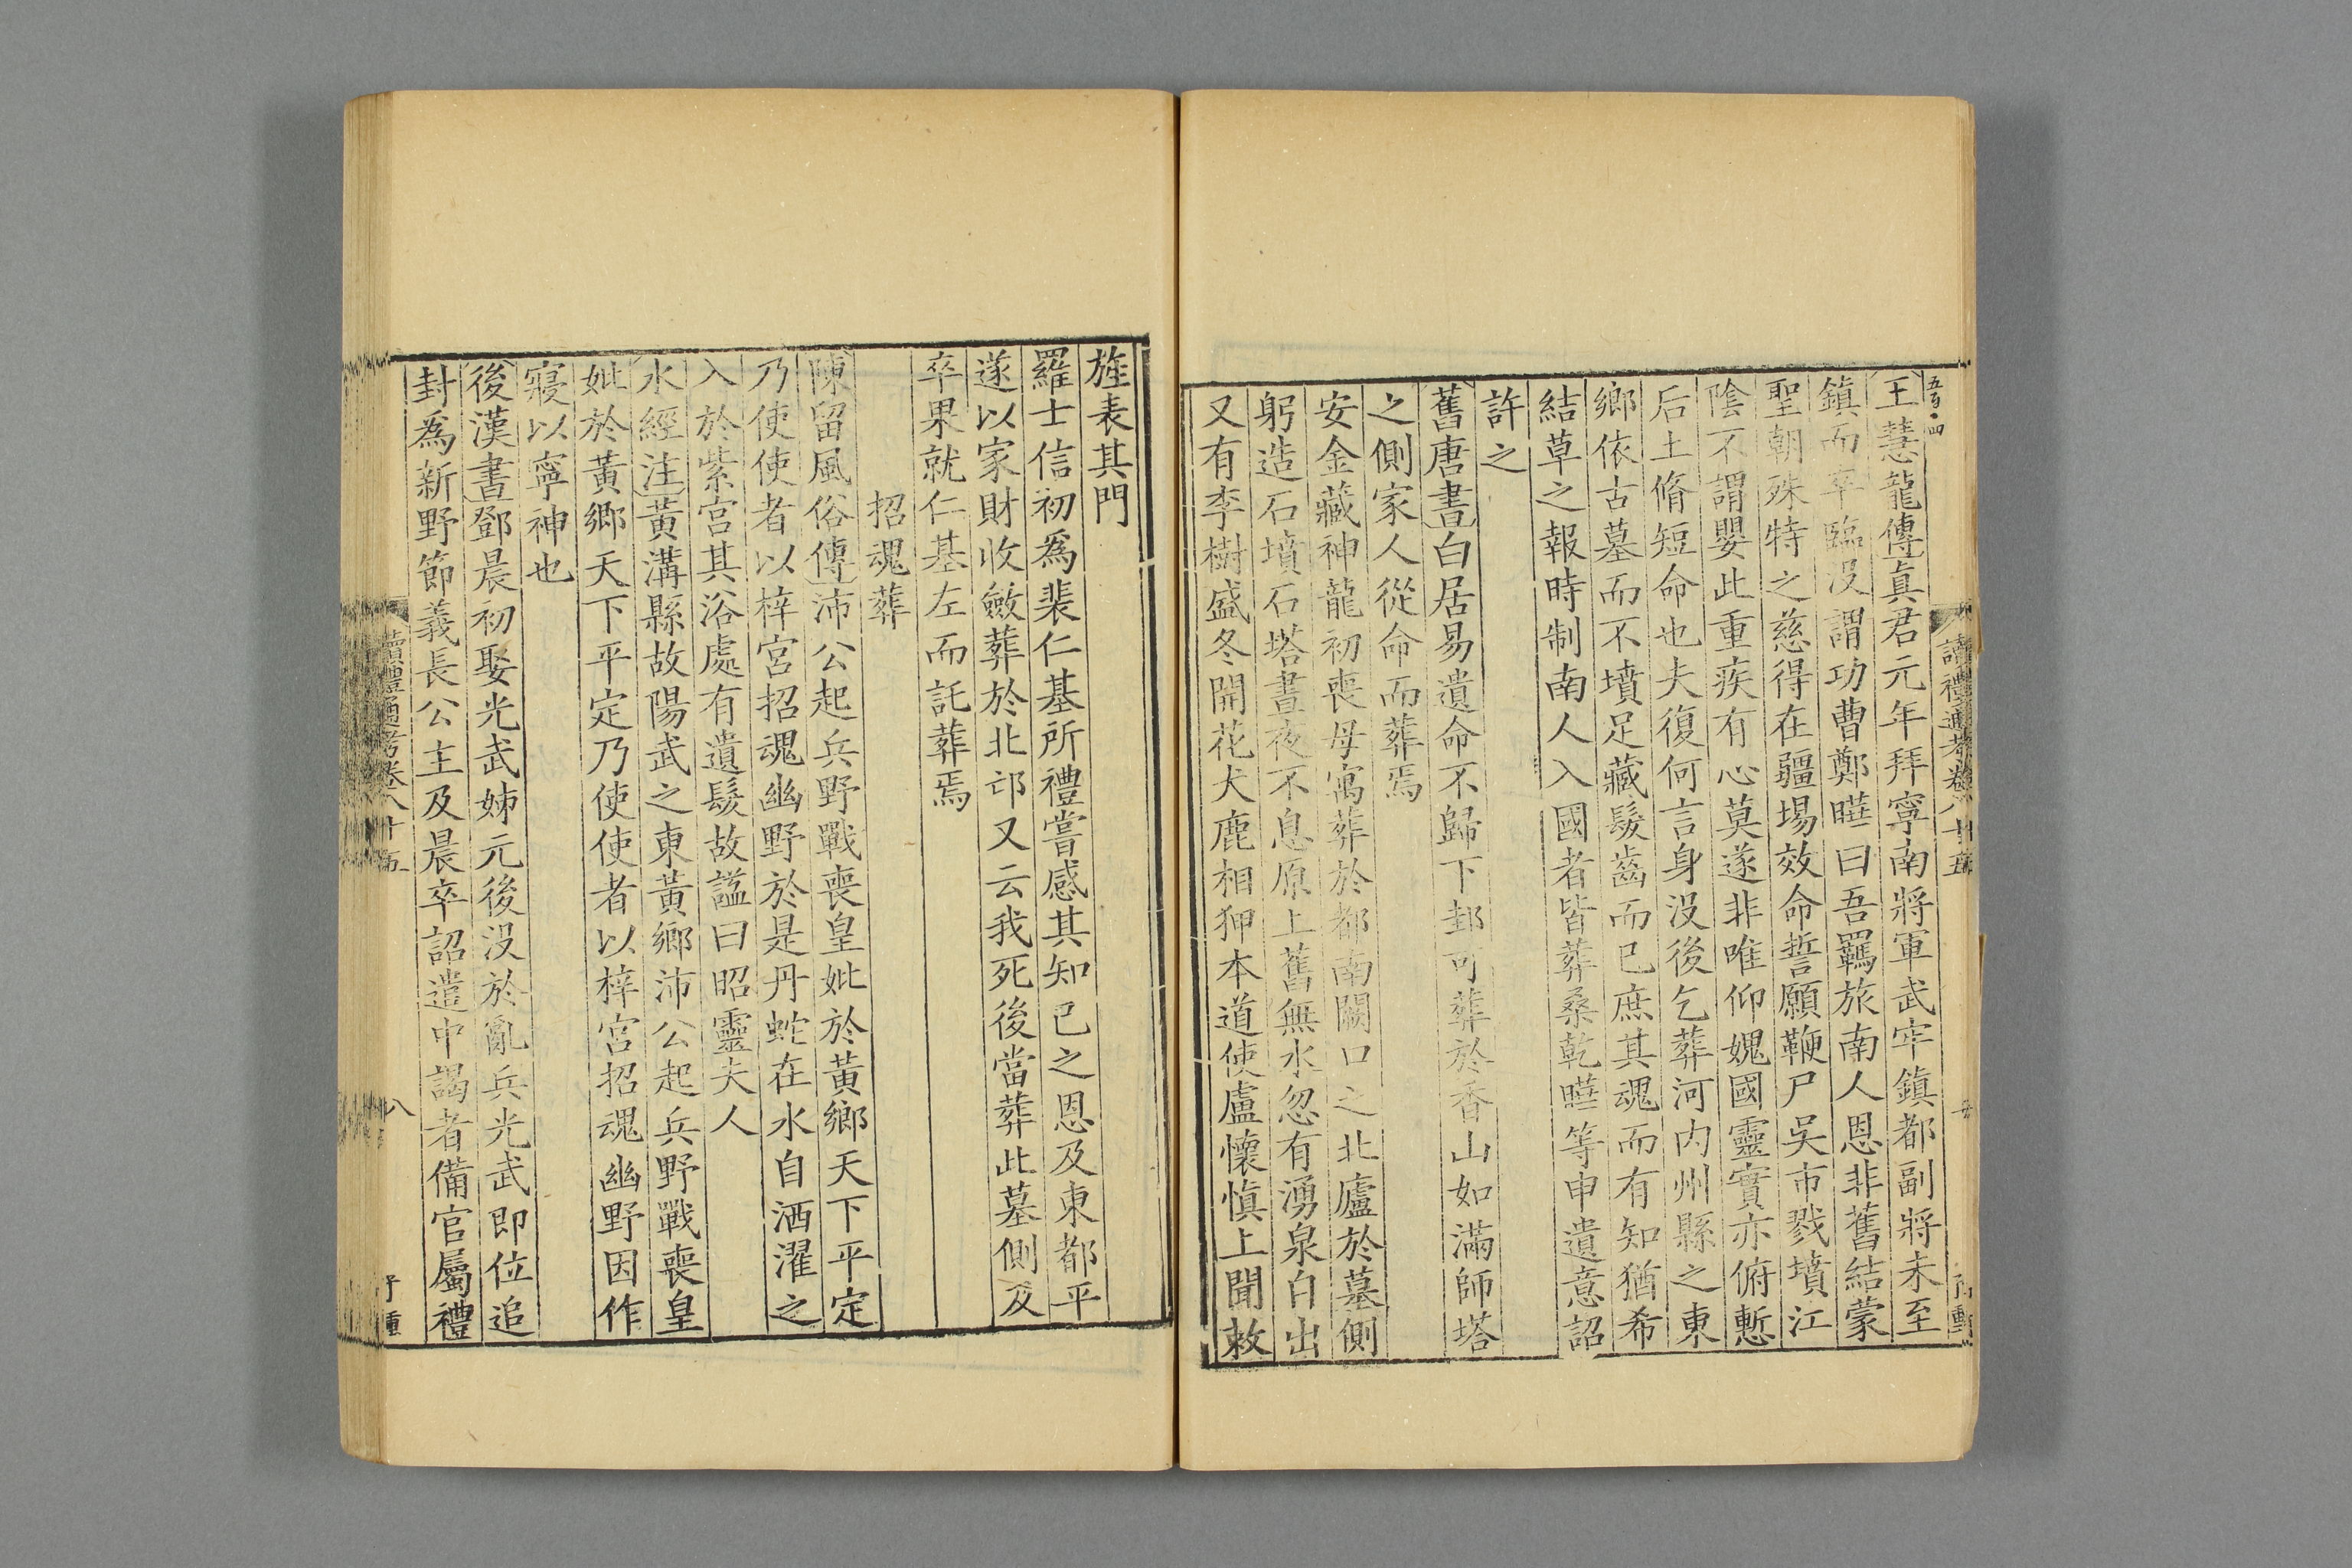 王慧龍傳眞君元年拜寧南將軍武牢鎮都副將未至
鎮而卒臨没謂功曹鄭曄曰吾羈旅南人恩非舊結蒙
聖朝殊特之慈得在疆場效命誓願鞭尸吳市戮墳江
陰不謂嬰此重疾有心莫遂非唯仰媿國靈實亦俯慙
后土脩短命也夫復何言身没後乞葬河内州縣之東
鄉依古墓而不墳足藏髮齒而已庶其魂而有知猶希
結草之報時制南人入國者皆葬桑乾曄等申遺意詔
許之
舊唐書白居易遺命不歸下邽可葬於香山如滿師塔
之側家人從命而葬焉
安金藏神龍初喪母寓葬於都南闕口之北廬於墓側
躬造石墳石塔晝夜不息原上舊無水忽有湧泉自出
又有李樹盛冬開花犬鹿相狎本道使盧懷慎上聞敕
讀禮通考卷八十五
旌表其門
羅士信初爲裴仁基所禮嘗感其知已之恩及東都平
遂以家財收斂葬於北邙又云我死後當葬此墓側及
卒果就仁基左而託葬焉
招魂葬
陳留風俗傳沛公起兵野戰喪皇妣於黃鄉天下平定
乃使使者以梓宮招魂幽野於是丹蛇在水自洒濯之
入於紫宮其浴處有遺髮故諡曰昭靈夫人
水經注黃溝縣故陽武之東黃鄉沛公起兵野戰喪皇
妣於黃鄉天下平定乃使使者以梓宮招魂幽野因作
寢以寧神也
後漢書鄧晨初娶光武姊元後没於亂兵光武即位追
封爲新野節義長公主及晨卒詔遣中謁者備官屬禮
讀禮通考卷八十五
八